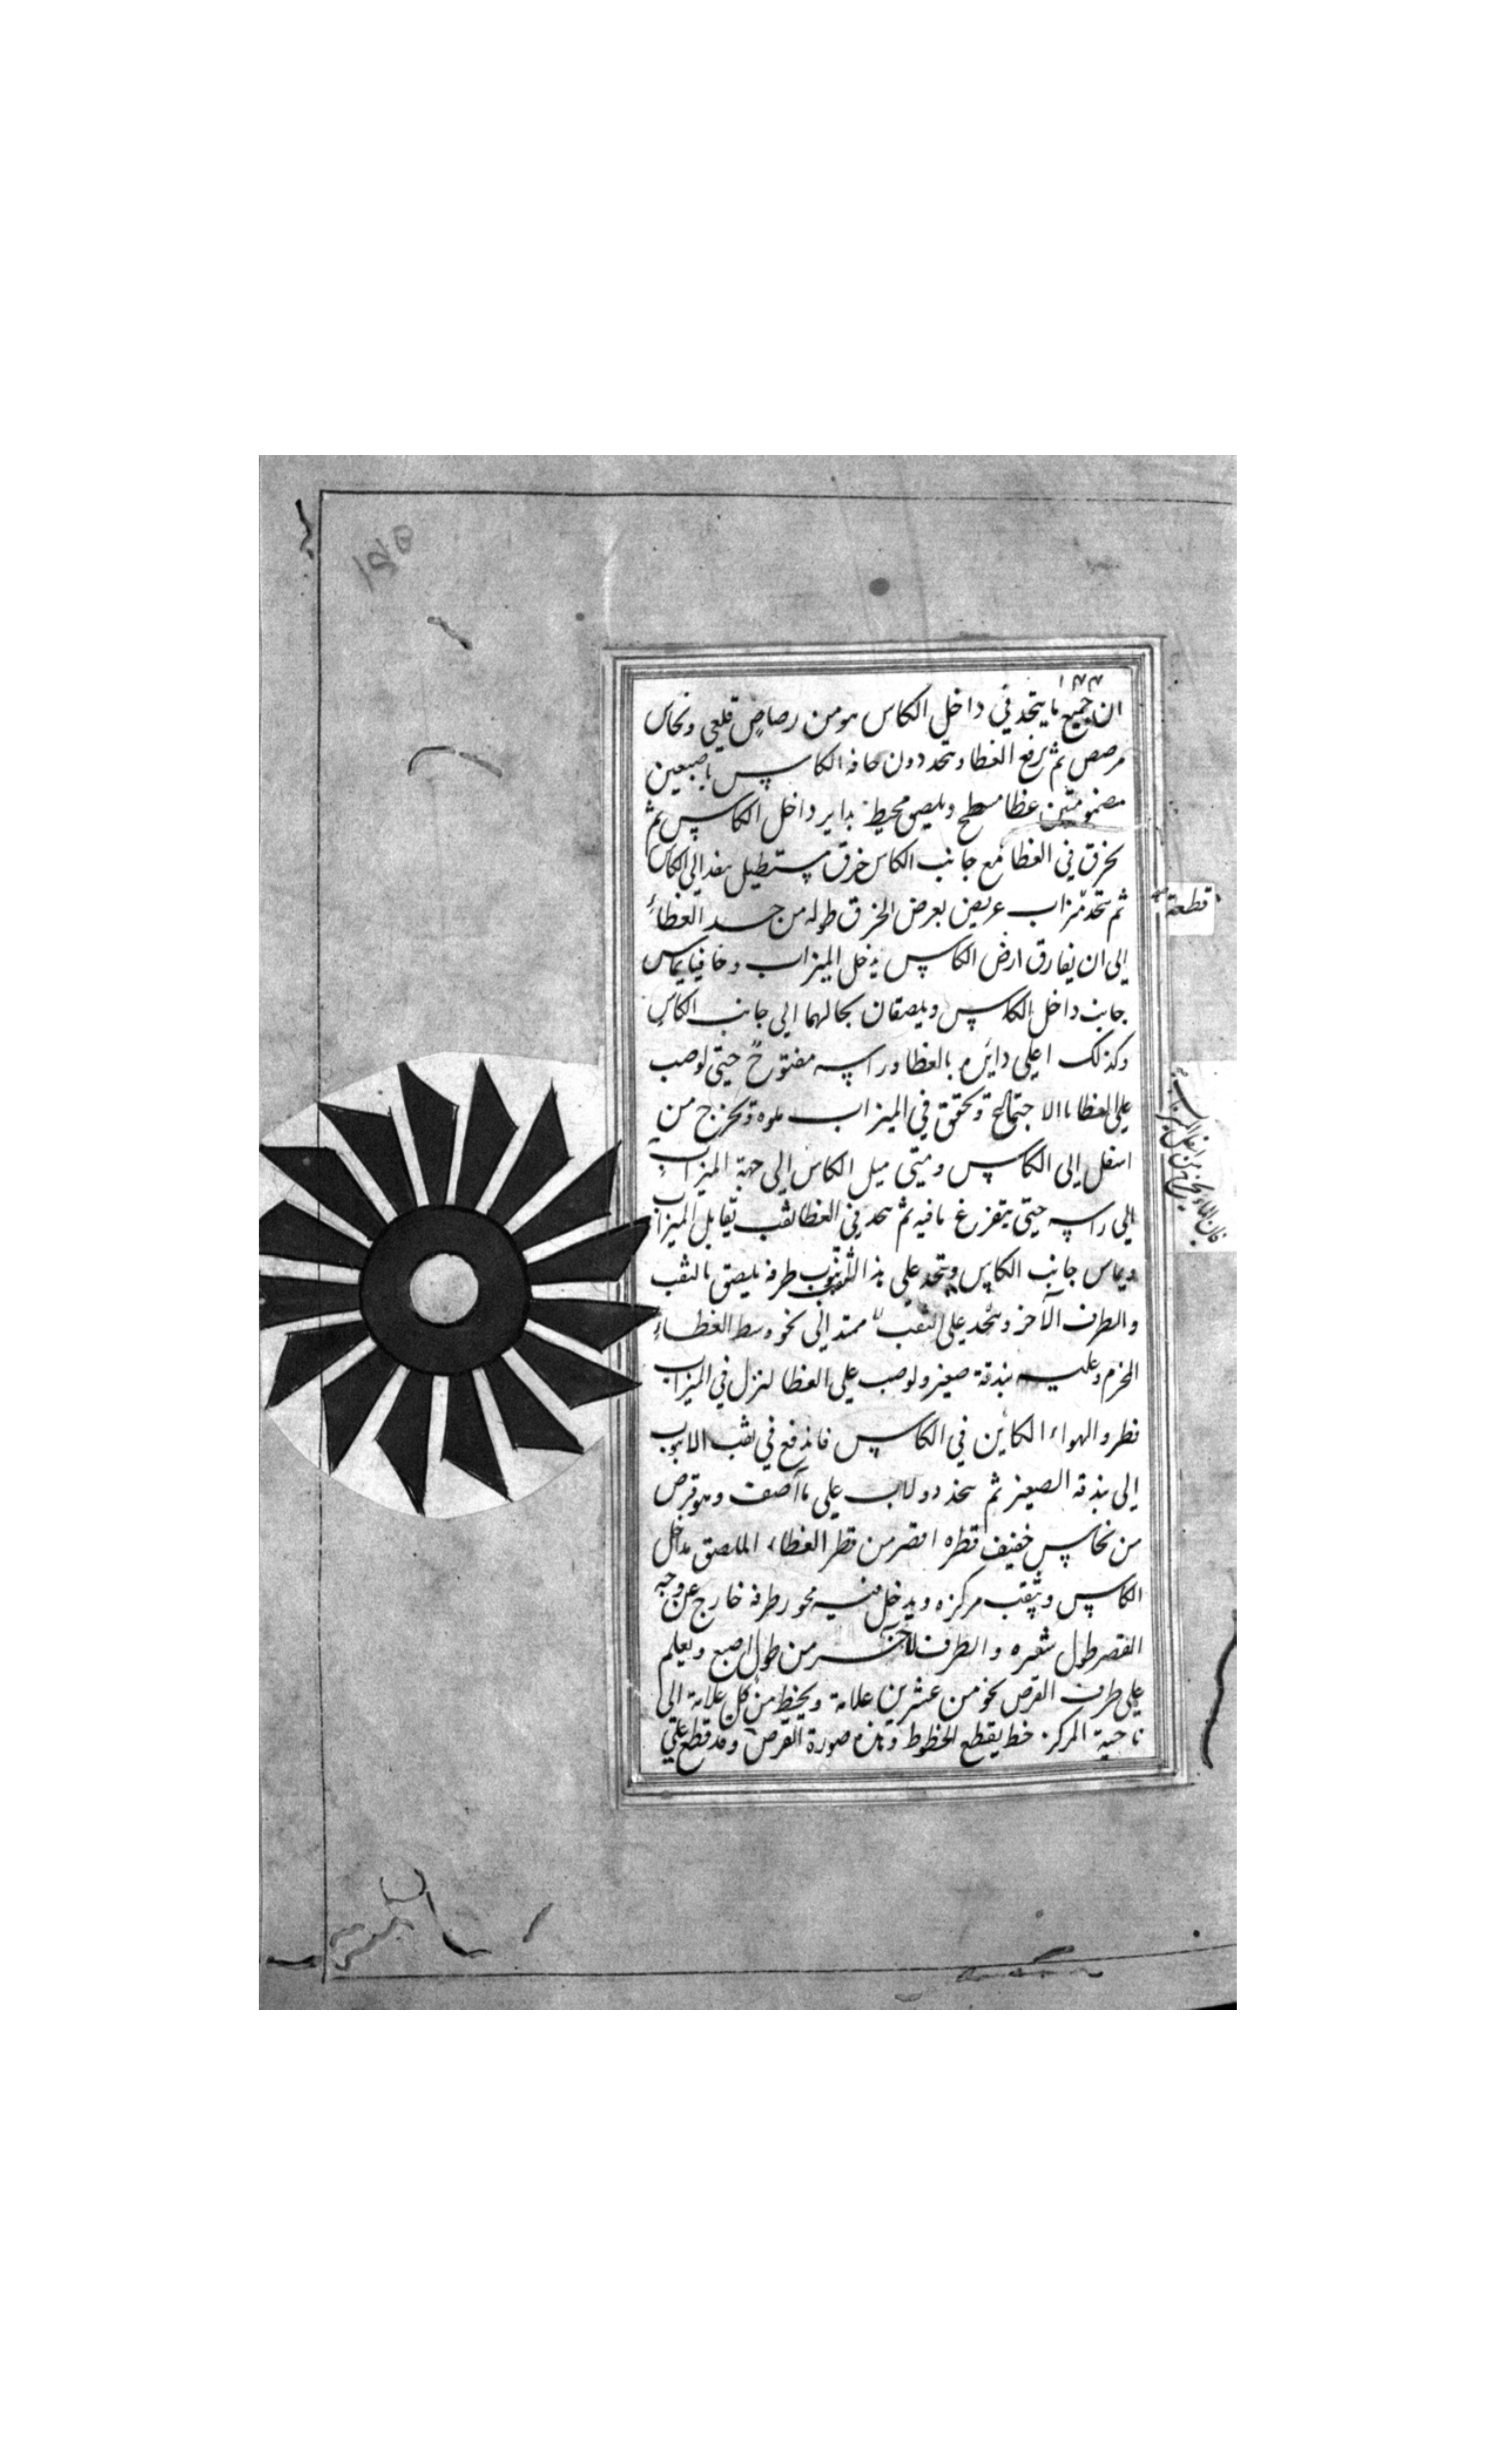 ١٤٤
ان جميع ما يتخد في داخل الكاس هو من رصاص قلعي ونحاس
مرصص ثم يرفع الغطا ويتحد دون حافه الكاس باصبعين
مضمومتين غطا مسطح ويلصق محيط بداير داخل الكاس ثم
يخرق في الغطا مع جانب الكاس خرق مستطيل ينفد الى الكاس
ثم يتخد ميزاب عريض بعرض الخرق طوله من حد الغطاء
الى ان يفارق ارض الكاس يدخل الميزاب وحافيا يماس
جانب داخل الكاس ويلصقان بحالهما الى جانب الكاس
وكذلك اعلى دايره بالغطا وراسه مفتوح حتى لو صب
على الغطا ماالا وتحقق في الميزاب وتخرج من
اسفل الى الكاس ومتى ميل الكاس الى جهة الميزاب
الى راسه حتى يتفرغ مافيه ثم يتحد في الغطا ثقب تقابل الميزاب
ويماس جانب الكاس ويتحد على هذا الثقب طرفه يلصق بالثقب
والطرف الآخر ويتحد على الثقب ممتد الى نحو وسط الغطاء
المخرم وعليه بندقة صغير ولو صب على الغطا لنزل في الميزاب
فطرو الهواء الكاين في الكاس فاندفع في ثقب الانبوب
الى بندقة الصغير ثم يتخد دولاب على ما اصف وهو قرص
من نحاس خفيف قطره اقصر من قطر الغطاء الملصق بداخل
الكاس ويثقب مركزه ويدخل فيه محور طرفه خارج عن وجه
القصر طول شعيره والطرف الآخر من طول اصبع ويعلم
على طرف القرص نحو من عشرين علامة ويخط من كل علامة الى
ناحية المركز خط يقطع الخطوط وهذه صورة القرص وقد قطع على
قطعة
فان الماء يخرج من اسفل الميزاب